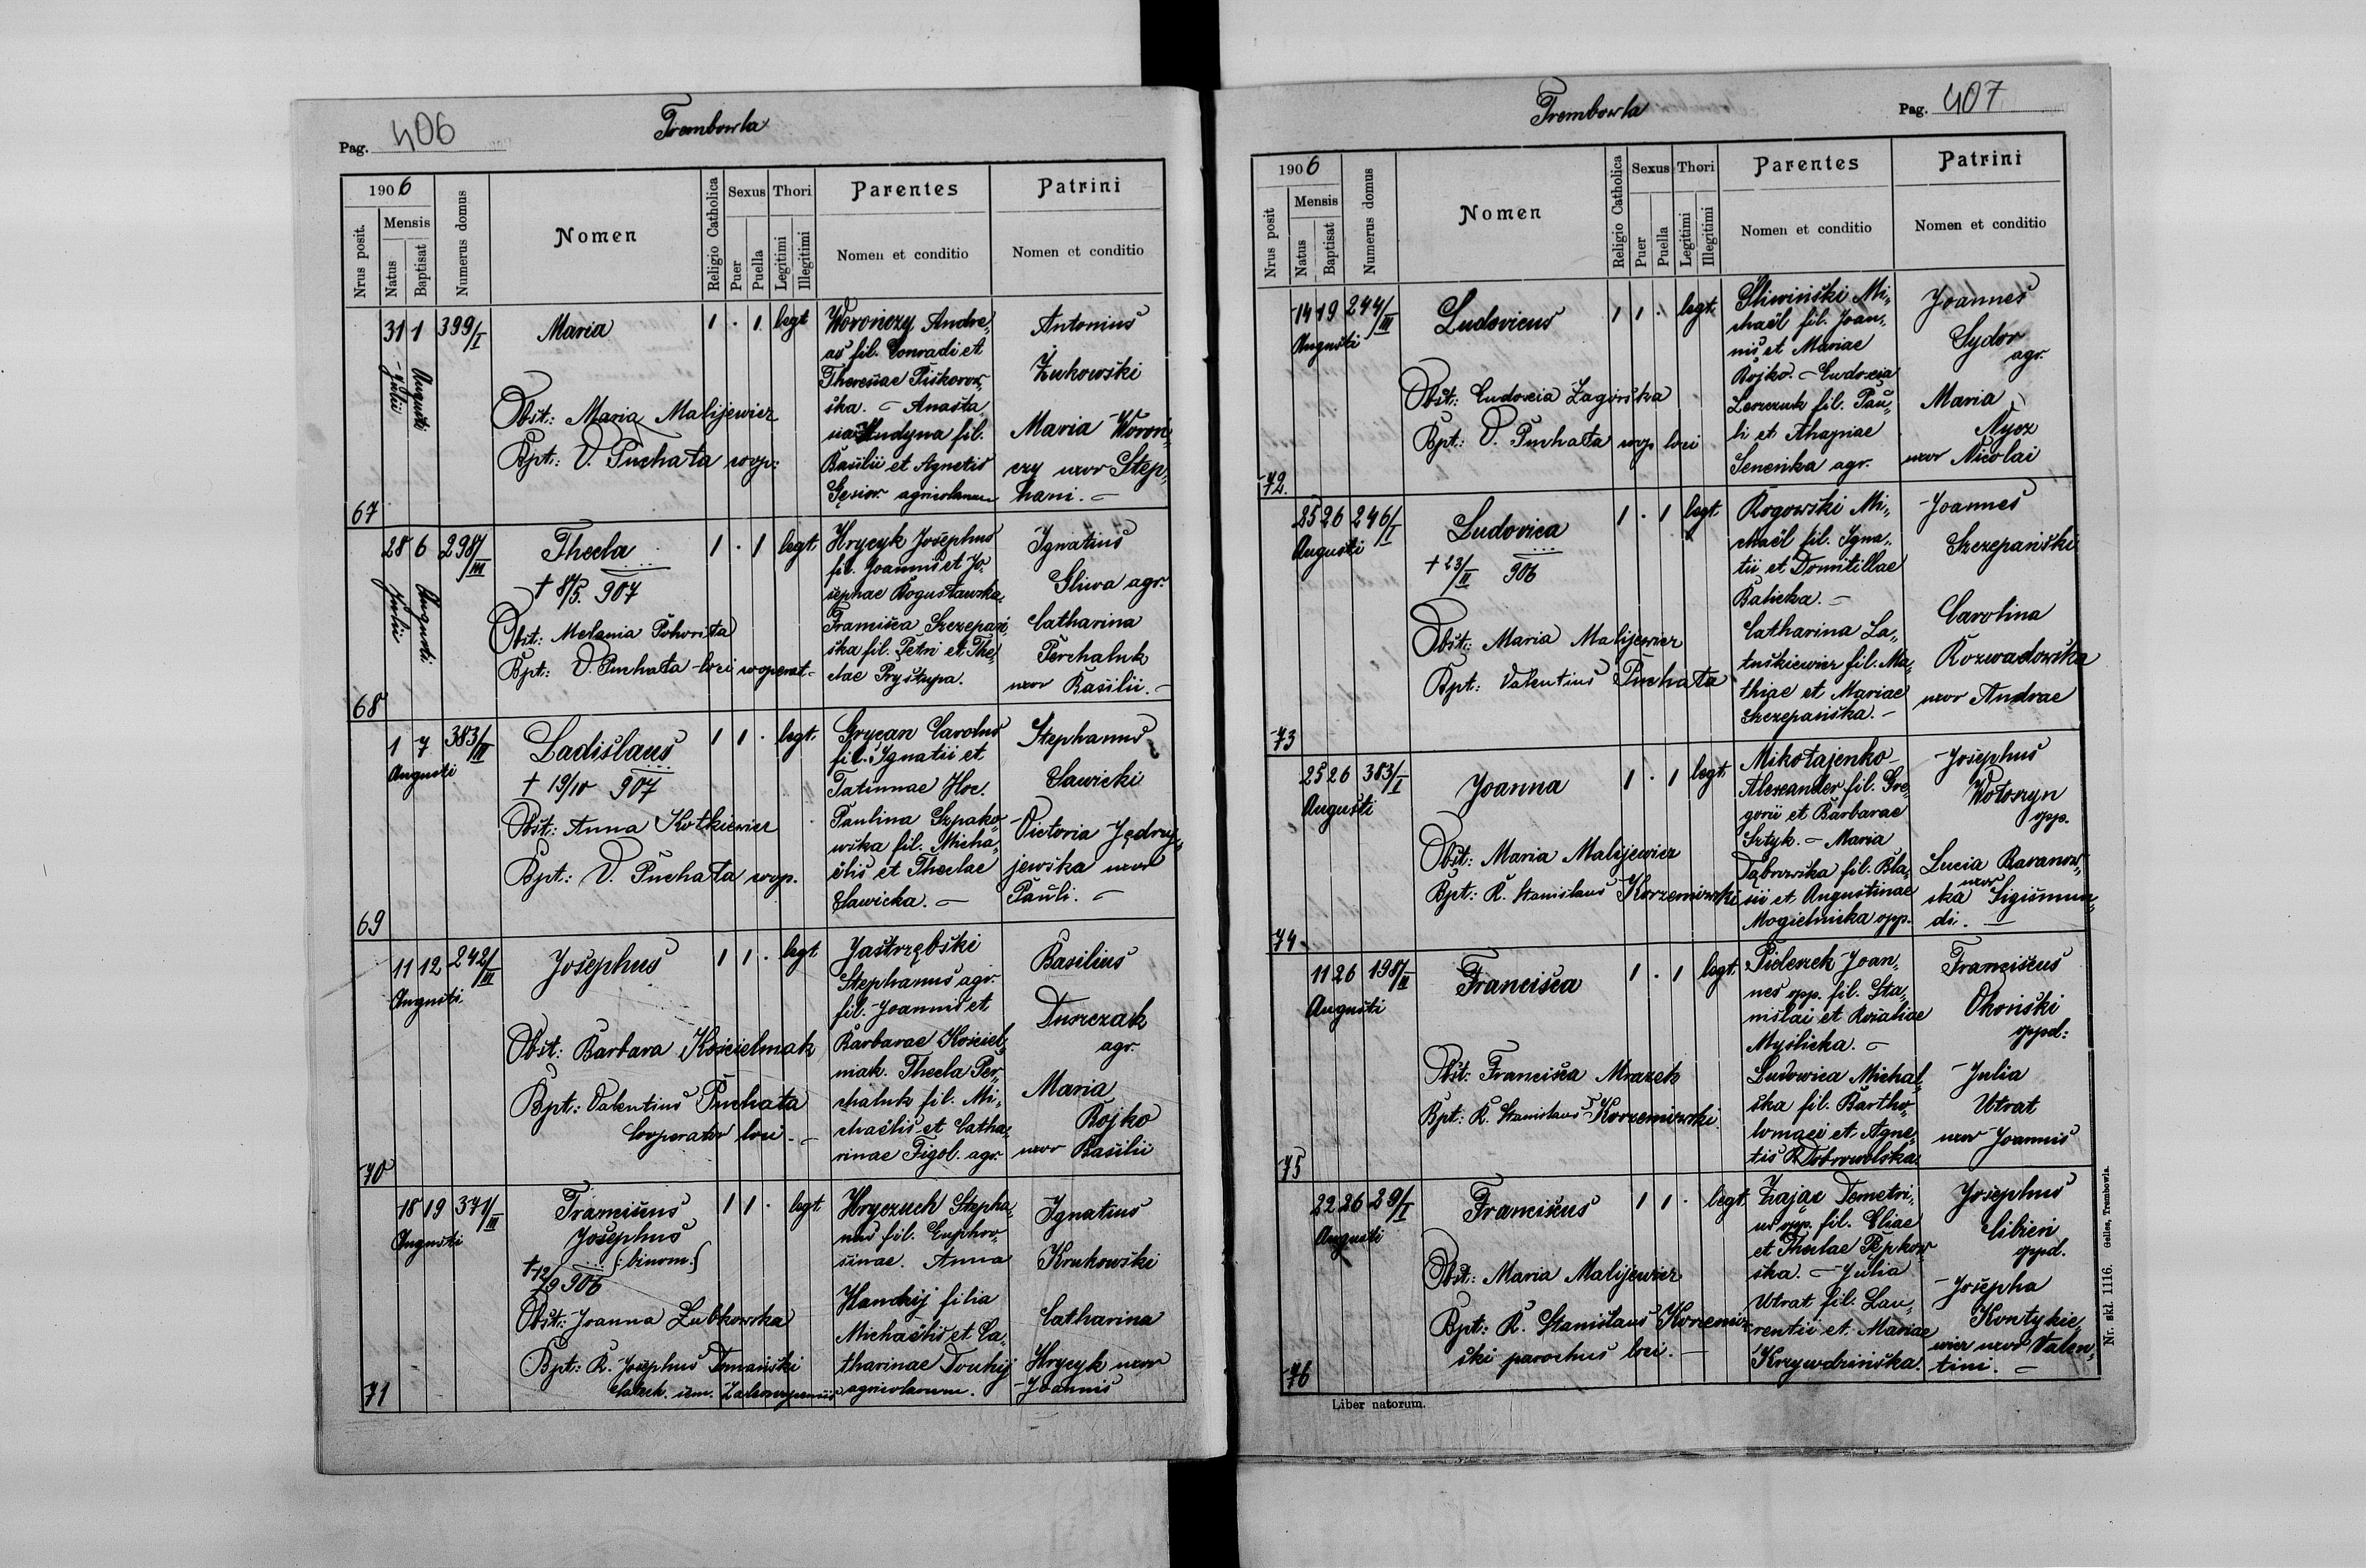 Pag. 406
Trembowla
1906
Nrus posit.
Mensis
Natus
Baptisat
Numerus domus
Nomen
Religio Catholica
Sexus
Puer
Puella
Thori
Legitimi
Illegitimi
Parentes
Nomen et conditio
Patrini
Nomen et conditio
67
31 1 399/I
Julii
Augusti
Maria
1 · 1 legt
Obst.: Maria Malijewicz
Bpt.: V. Puchała coop:
Worończy Andre„
as fil. Conradi et
Theresiae Piskorow„
ska. – Anasta„
sia Hudyna fil.
Basilii et Agnetis
Gęsior agricolarum
Antonius
Żukowski
Maria Woroń„
czy uxor Step„
hani. –
68
28 6 298/III
Julii
Augusti
Thecla
† 8/5. 907
1 · 1 legt.
Obst.: Melania Pohorista
Bpt: V. Puchała loci cooperat –
Hrycyk Josephus
fil. Joannis et Jo„
sephae Rogusławska.
Francisca Szczepań„
ska fil. Petri et The„
clae Prystupa.
Ignatius
Śliwa agr.
Catharina
Perchaluk
uxor Basilii. –
69
1 7 383/III
Augusti
Ladislaus
† 19/10 907
1 1 · legt.
Obst.: Anna Kotkiewicz
Bpt.: V. Puchała coop.
Grycan Carolus
fil. Ignatii et
Tatinnae Hoc.
Paulina Szpako„
wska fil. Micha„
ëlis et Theclae
Sawicka. –
Stephanus
Sawicki
Victoria Jędry„
jewska uxor
Pauli. –
70
11 12 242/III
Augusti
Josephus
1 1 · legt
Obst.: Barbara Kościelniak
Bpt.: Valentius Puchała
Cooperator loci –
Jastrzębski
Stephanus agr.
fil. Joannis et
Barbarae Kościel„
niak. Thecla Per„
chaluk fil. Mi„
chaëlis et Catha„
rinae Figol. agr.
Basilius
Duszczak
agr.
Maria
Bojko
uxor Basilii
71
18 19 371/III
Augusti
Franciscus
Josephus
(: binom. :)
† 12/9 906
1 1 · legt
Obst.: Joanna Zubkowska
Bpt.: R. Josephus Domański
Catech. sem.
Hryczuch Stepha„
nus fil. Euphro„
sinae. Anna
Handzij filia
Michaëlis et Ca„
tharinae Douhij
agricolarum.
Ignatius
Krukowski
Catharina
Hrycyk uxor
Joannis
Trembowla
Pag. 407
1906
Nrus posit
Mensis
Natus
Baptisat
Numerus domus
Nomen
Religio Catholica
Sexus
Puer
Puella
Thori
Legitimi
Illegitimi
Parentes
Nomen et conditio
Patrini
Nomen et conditio
72.
14 19 244/III
Augusti
Ludovicus
1 1 · legt.
Obst.: Eudoxia Zagórska
Bpt.: V. Puchała coop loci
Śliwiński Mi„
chaël fil. Joan„
nis et Mariae
Bojko. – Eudoxia
Leszczuk fil. Pau„
li et Ahapiae
Seneńka agr.
Joannes
Sydor
agr.
Maria
Nycz
uxor Nicolai
73
25 26 246/I
Augusti
Ludovica
† 23/II 906
1 · 1 legt.
Obst.: Maria Malijewicz
Bpt.: Valentius Puchała
Rogowski Mi„
chaël fil. Igna„
tii et Domitillae
Balicka. –
Catharina La„
tuśkiewicz fil. Ma„
thiae et Mariae
Szczepańska. –
Joannes
Szczepański
Carolina
Rozwadowska
uxor Andrae
74
25 26 383/I
Augusti
Joanna
1 · 1 legt.
Obst.: Maria Malijewicz
Bpt.: R. Stanislaus Korzeniowski
Mikołajenko
Alexander fil. Gre„
gorii et Barbarae
Sztyk. – Maria
Dąbrowska fil. Bla„
sii et Augustinae
Mogielnicka opp.
Josephus
Wołoszyn
opp.
Lucia Baranow„
ska uxor Sigismun„
di. –
75
11 26 198/II
Augusti
Francisca
1 · 1 legt.
Obst: Francisca Mrazek
Bpt: R. Stanislaus Korzeniowski.
Pideszek Joan„
nes opp. fil. Sta„
nislai et Rosaliae
Myślicka. –
Ludowica Michal„
ska fil. Bartho„
lomaei et Agne„
tis Dobrowolska.
Franciscus
Okoński
oppd:
Julia
Utrat
uxor Joannis
76
22 26 29/I
Augusti
Franciscus
1 1 · legt.
Obst.: Maria Malijewicz
Bpt: R. Stanislaus Korzeniow„
ski parochus loci. –
Zając Demetri„
us opp. fil. Eliae
et Theclae Pępkow„
ska. – Julia
Utrat fil. Lau„
rentii et Mariae
Krzywdzińska.
Josephus
Cibień
oppd.
Josepha
Kontykie„
wicz uxor Valen„
tini. –
Liber natorum.
Nr. skł. 1116. Gelles, Trembowla.